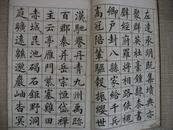 左達承明既集墳典亦
聚群英杜稿鍾隸漆書
壁經府羅將相路俠槐
卿戶封八縣家給千兵
高冠陪輦驅轂振纓世
漠馳譽丹青九州禹跡
百郡秦并嶽宗恆岱禪
主云亭雁門紫塞雞田
赤城昆池碣石鉅野洞
庭曠遠綿邈巖岫杳冥